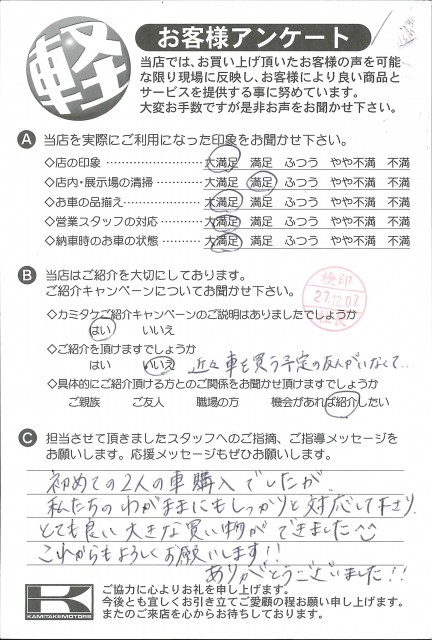 軽
お客様アンケート
当店では、お買い上げ頂いたお客様の声を可能
な限り現場に反映し、お客様により良い商品と
サービスを提供する事に努めています。
大変お手数ですが是非お声をお聞かせ下さい。
A 当店を実際にご利用になった印象をお聞かせ下さい。
◇店の印象 ………………… 大満足 満足 ふつう やや不満 不満
◇店内・展示場の清掃… 大満足 満足 ふつう やや不満 不満
◇お車の品揃え………… 大満足 満足 ふつう やや不満 不満
◇営業スタッフの対応… 大満足 満足 ふつう やや不満 不満
◇納車時のお車の状態… 大満足 満足 ふつう やや不満 不満
B 当店はご紹介を大切にしております。
ご紹介キャンペーンについてお聞かせ下さい。
検印
27.12.07
◇カミタケご紹介キャンペーンのご説明はありましたでしょうか
はい いいえ
◇ご紹介を頂けますでしょうか
はい いいえ 近々車を買う予定の友人がいなくて…
◇具体的にご紹介頂ける方とのご関係をお聞かせ頂けますでしょうか
ご親族 ご友人 職場の方 機会があれば紹介したい
C 担当させて頂きましたスタッフへのご指摘、ご指導メッセージを
お願いします。応援メッセージもぜひお願いします。
初めての2人の車購入でしたが、
私たちのわがままにもしっかりと対応して下さり、
とても良い大きな買い物ができました^^
これからもよろしくお願いします!!
ありがとうございました!!
K
KAMITAKEMOTORS
ご協力に心よりお礼を申し上げます。
今後とも宜しくお引き立てご愛顧の程お願い申し上げます。
またのご来店を心からお待ちしております。